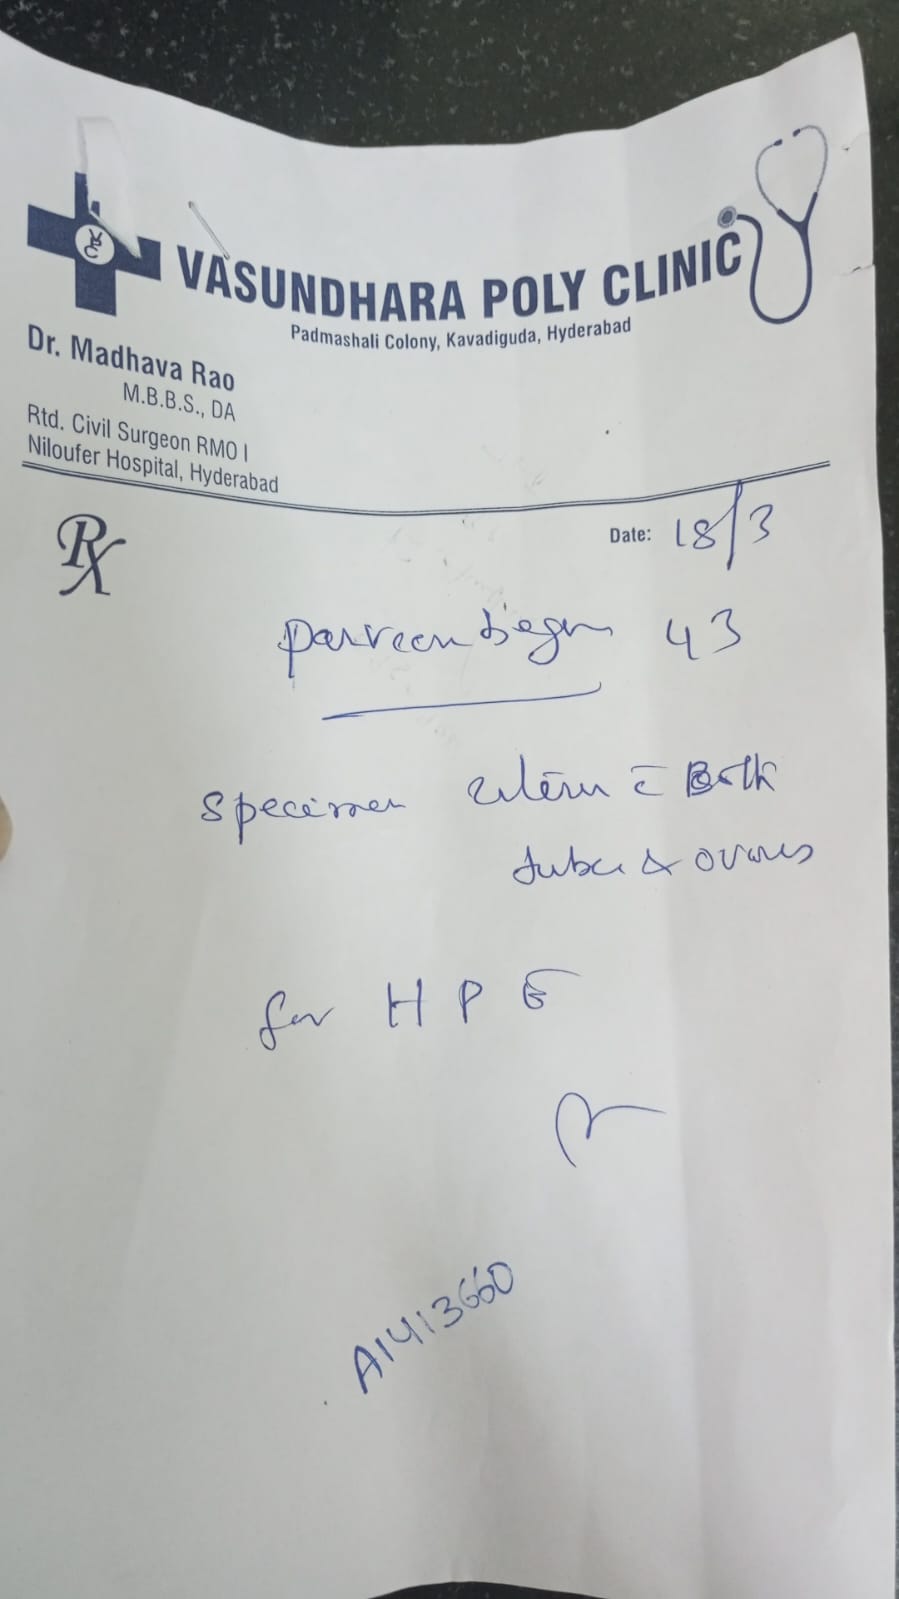 VASUNDHARA POLY CLINIC
Padmashali Colony, Kavadiguda, Hyderabad
Dr. Madhava Rao
M.B.B.S., DA
Rtd. Civil Surgeon RMO I
Niloufer Hospital, Hyderabad
Rx
Date: 18/3
parveen begum 43
specimen uterus c̄ Both
tubes & ovaries
for HPE
A1413660